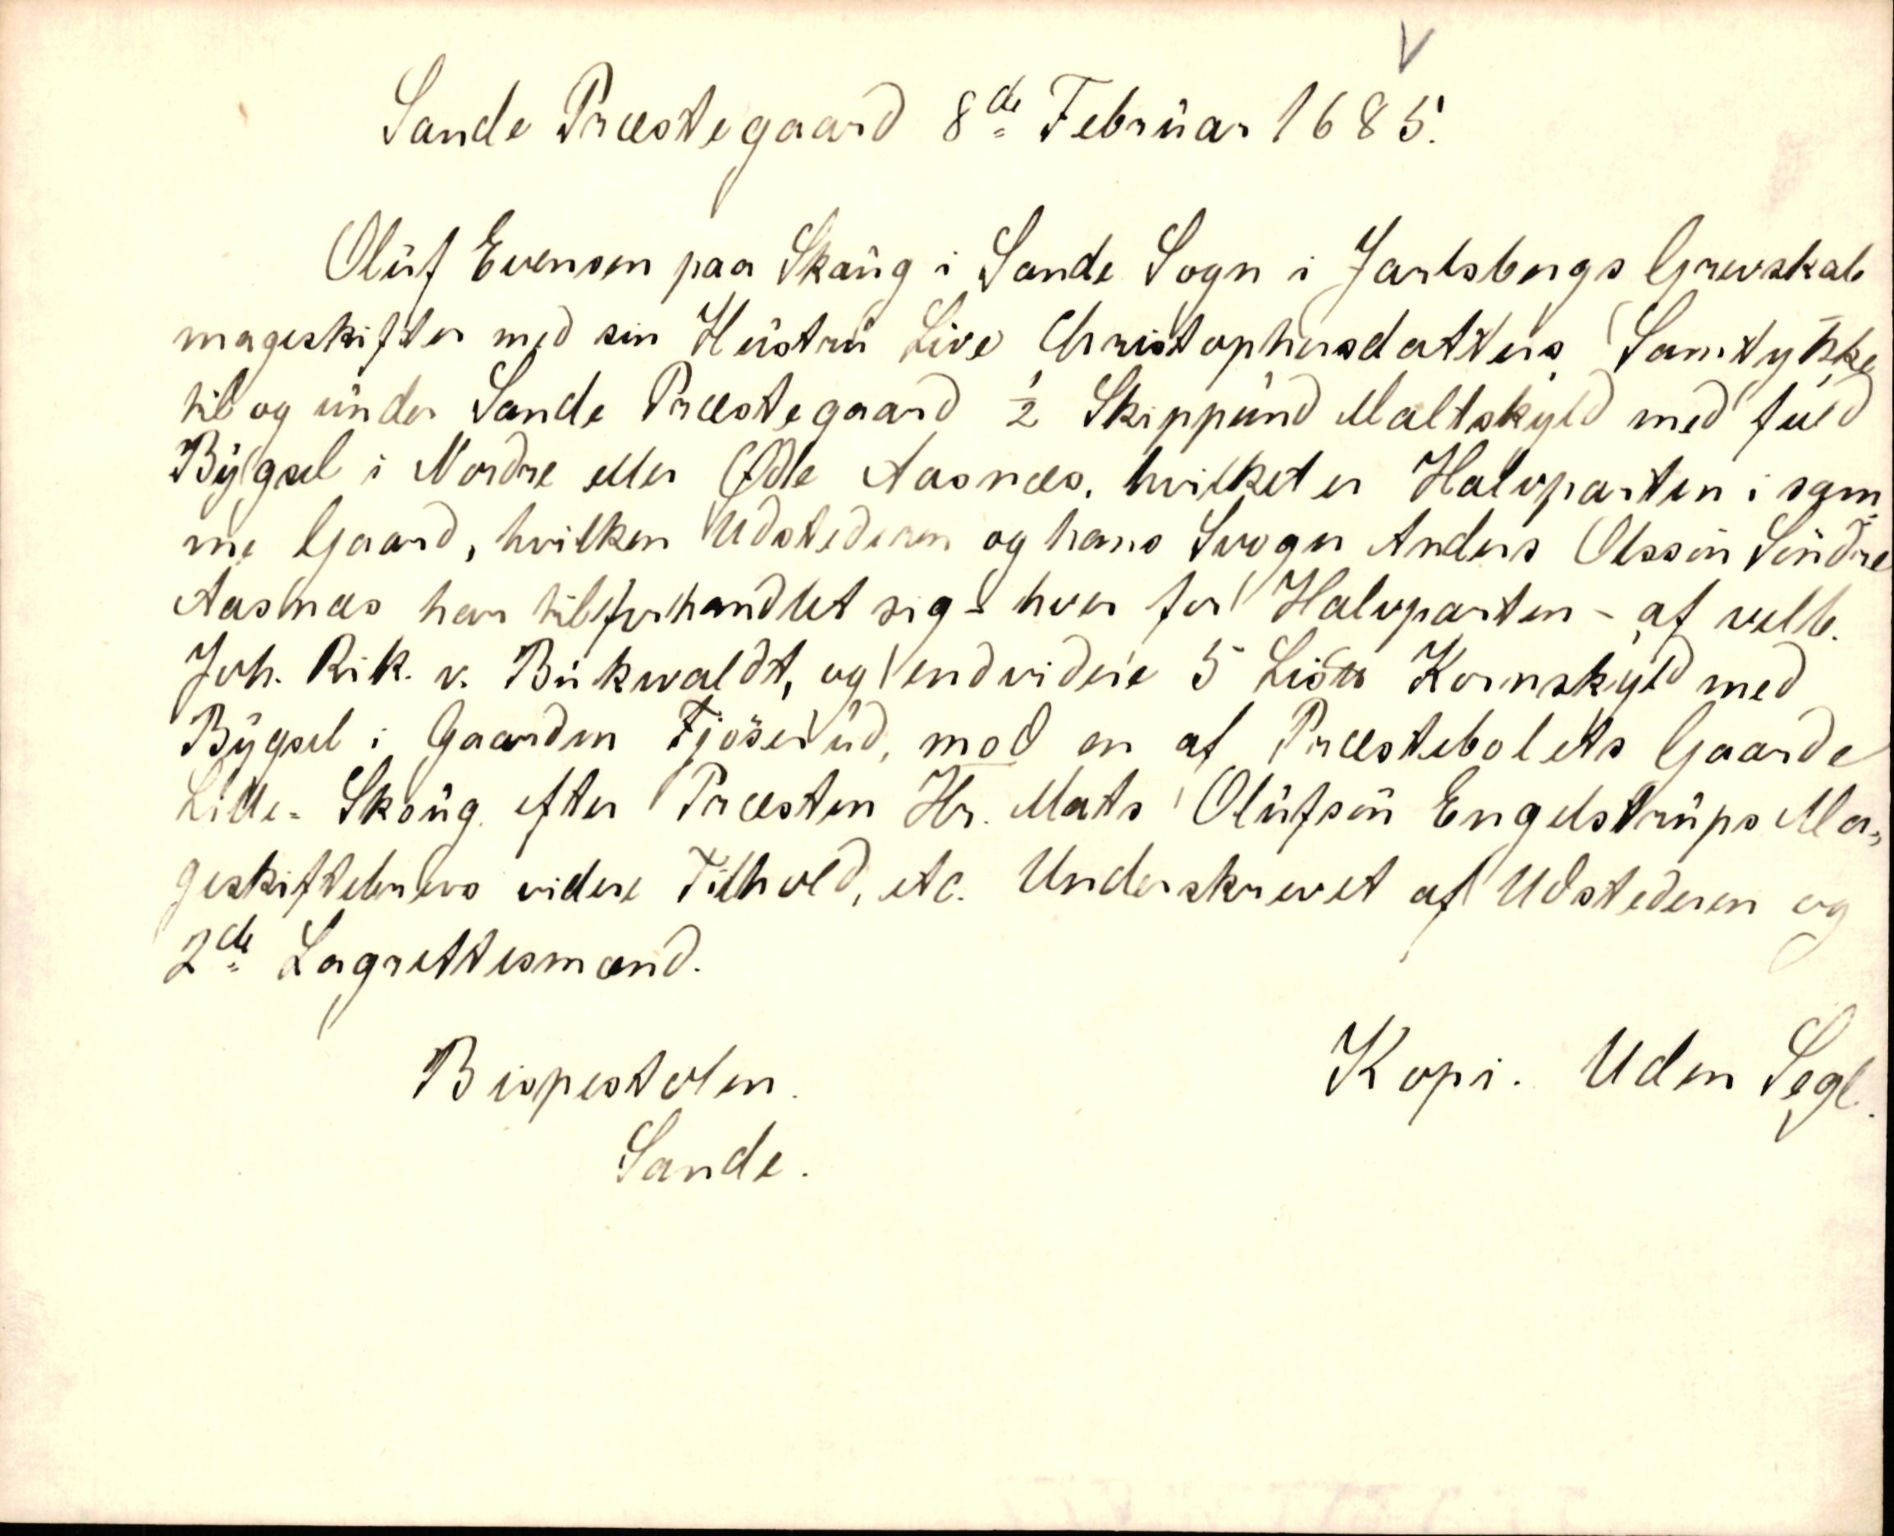 Sande Præstegaard 8de Februar 1685.
Oluf Evensen paa Skaug i Sande Sogn i Jarlsbergs Grevskab
mageskifter med sin Hustru Live Christophersdatters Samtykke
til og under Sande Præstegaard ½ Skippund Maltskyld med fuld
Bygsel i Nordre eller Øde Aasnæs, hvilket er Halvparten i sam-
me Gaard, hvilken Udstederen og hans Svoger Anders Olssøn Søndre
Aasnæs har tilforhandlet sig - hver for Halvparten - af velb.
Joh. Rik. v. Bukwaldt, og endvidere 5 Kornskyld med
Bygsel i Gaarden Fjøserud, mod en af Præstebolets Gaarde
Lille-Skoug efter Præsten Hr. Mats Olufsøn Engelstrups Ma-
geskiftebrevs videre Tilhold, etc. Underskrevet af Udstederen og
2de Lagrettesmænd.
Bispestolen.
Kopi. Uden Segl.
Sande.